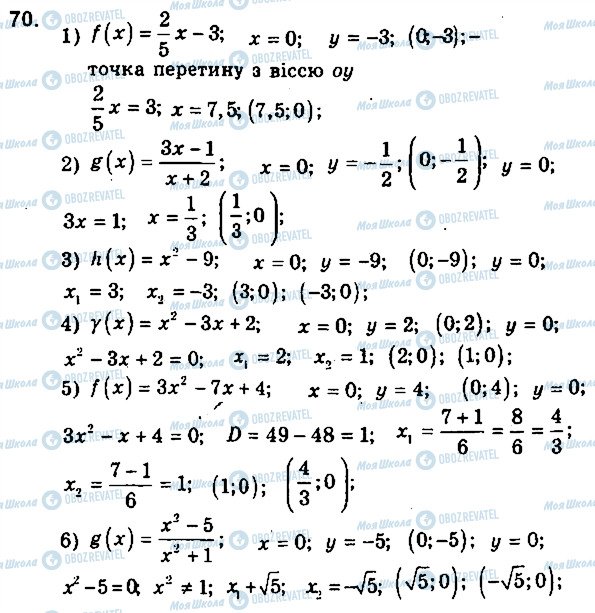 70.
1) f(x) = 2/5 x − 3; x = 0; y = −3; (0;−3);−
точка перетину з віссю оу
2/5 x = 3; x = 7,5; (7,5;0);
2) g(x) = (3x − 1)/(x + 2); x = 0; y = −1/2; (0;−1/2); y = 0;
3x = 1; x = 1/3; (1/3;0);
3) h(x) = x² − 9; x = 0; y = −9; (0;−9); y = 0;
x₁ = 3; x₂ = −3; (3;0); (−3;0);
4) γ(x) = x² − 3x + 2; x = 0; y = 2; (0;2); y = 0;
x² − 3x + 2 = 0; x₁ = 2; x₂ = 1; (2;0); (1;0);
5) f(x) = 3x² − 7x + 4; x = 0; y = 4; (0;4); y = 0;
3x² − x + 4 = 0; D = 49 − 48 = 1; x₁ = (7 + 1)/6 = 8/6 = 4/3;
x₂ = (7 − 1)/6 = 1; (1;0); (4/3;0);
6) g(x) = (x² − 5)/(x² + 1); x = 0; y = −5; (0;−5); y = 0;
x² − 5 = 0; x² ≠ 1; x₁ + √5; x₂ = −√5; (√5;0); (−√5;0);
Моя Школа OBOZREVATEL